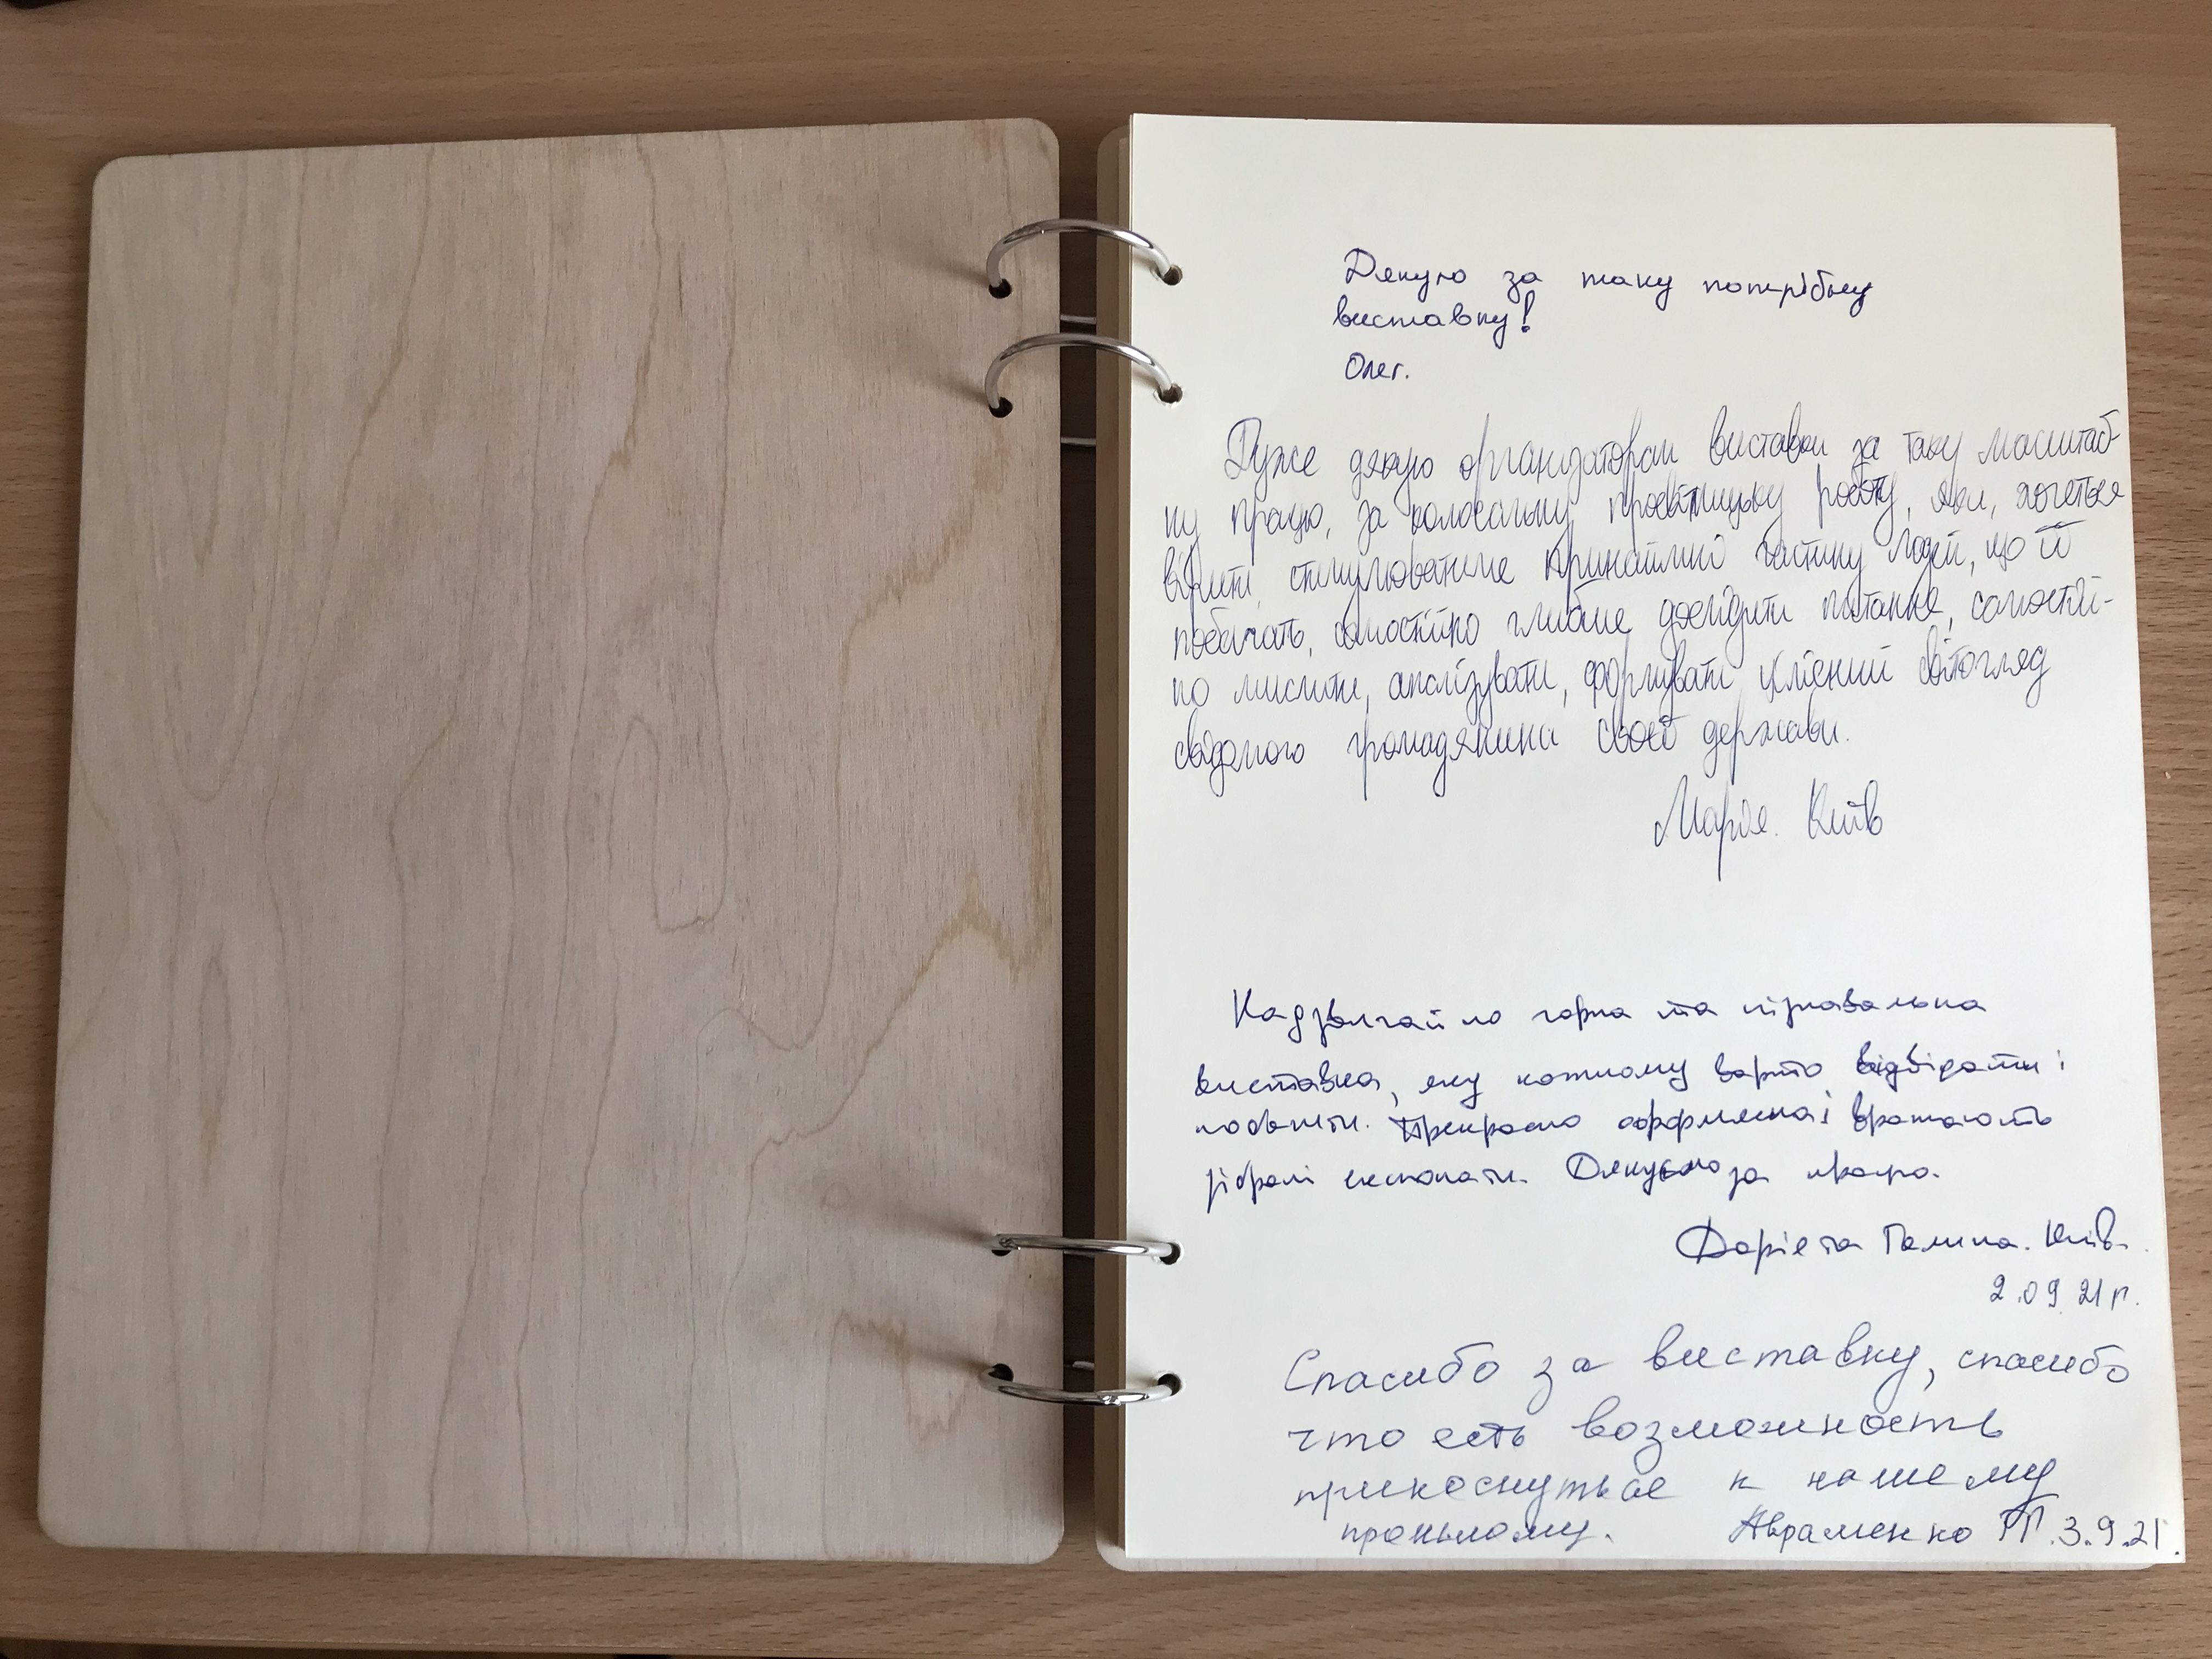 Дякую за таку потрібну
виставку!
Олег.
Дуже дякую організаторам виставки за таку масштаб-
ну працю, за колосальну просвітницьку роботу, яка, хочеться
вірити, стимулюватиме принаймні частину людей, що її
побачать, самостійно глибше дослідити питання, самостій-
но мислити, аналізувати, формувати цілісний світогляд
свідомого громадянина своєї держави.
Марія. Київ
Надзвичайно гарна та пізнавальна
виставка, яку кожному варто відвідати і
побачити. Прекрасно оформлена і вражають
зібрані експонати. Дякуємо за працю.
Дарія та Галина. Київ.
2.09.21 р.
Спасибо за виставку, спасибо
что есть возможность
прикоснуться к нашему
прошлому. Авраменко 3.9.21.